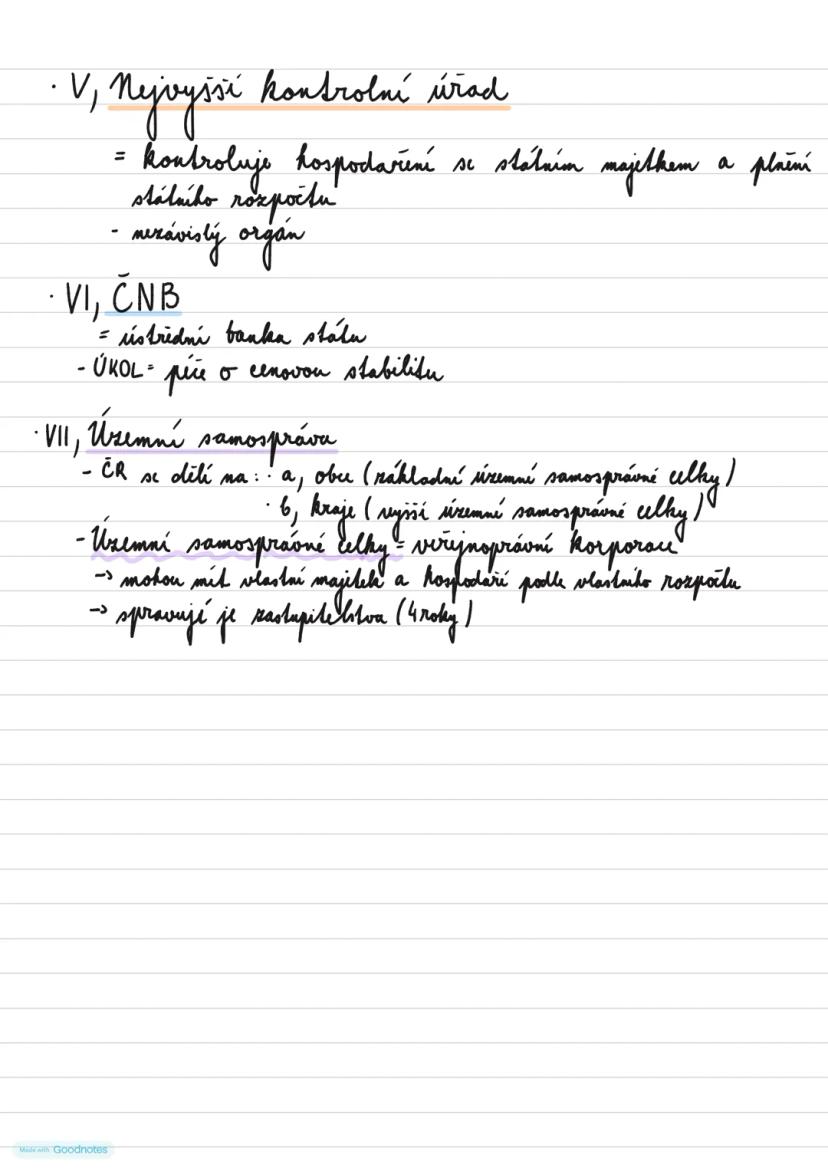 · V, Nejvyšší kontrolní úřad
= kontroluje hospodaření se státním majetkem a plnění
státního rozpočtu
- nezávislý orgán
· VI, ČNB
= ústřední banka státu
- ÚKOL = péče o cenovou stabilitu
· VII, Územní samospráva
- ČR se dělí na: · a, obce (základní územní samosprávné celky)
· b, kraje (vyšší územní samosprávné celky)
- Územní samosprávné celky = veřejnoprávní korporace
-> mohou mít vlastní majetek a hospodaří podle vlastního rozpočtu
-> spravují je zastupitelstva (4 roky)
Made with Goodnotes